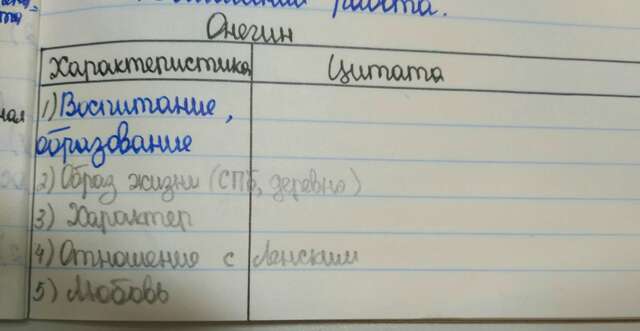 работа.
Онегин
Характеристика Цитата
1) Воспитание,
образование
2) Образ жизни (СПб, деревня)
3) Характер
4) Отношение с Ленским
5) Любовь